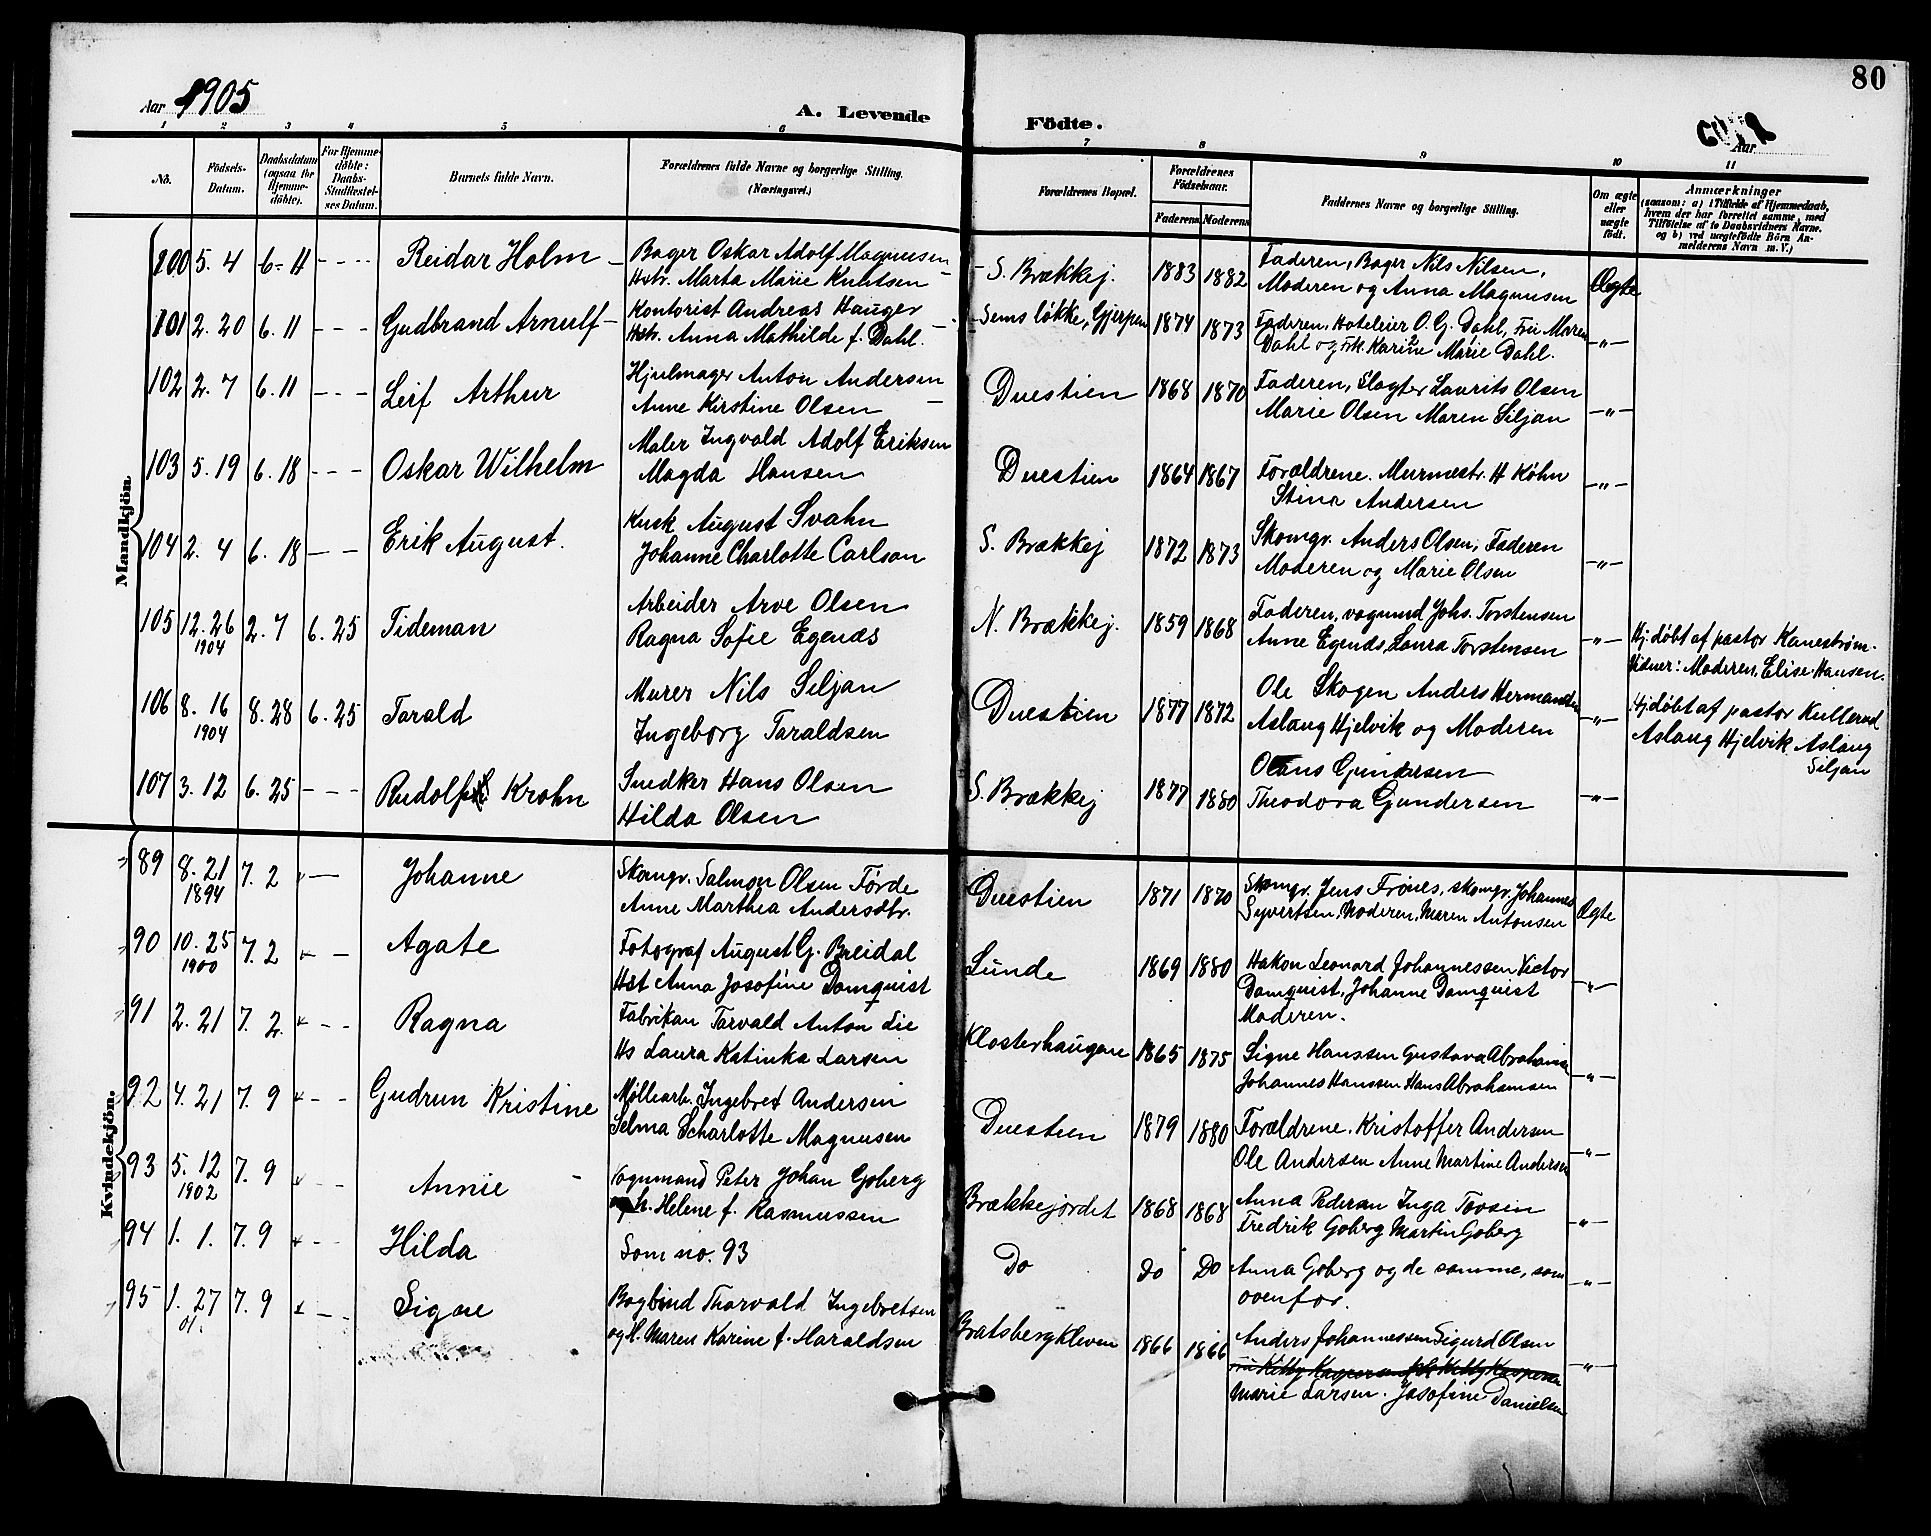 80
Aar 1905
A. Levende Födte.
Aar
1 2 3 4 5 6 7 8 9 10 11
No.
Födsels-Datum.
Daabsdatum (ogsaa for Hjemme-döbte).
For Hjemme-döbte: Daabs-Stadfæstel-ses Datum.
Barnets fulde Navn.
Forældrenes fulde Navne og borgerlige Stilling. (Næringsvei.)
Forældrenes Bopæl.
Forældrenes Födselsaar.
Faderens Moderens
Faddernes Navne og borgerlige Stilling.
Om ægte eller uægte födt.
Anmærkninger
(saasom: a) i Tilfælde af Hjemmedaab, hvem der har forrettet samme, med Tilföielse af to Daabsvidners Navne. og b) ved uægtefödte Börn An-melderens Navn m. V.)
Mandkjön
100 5. 4 6 - 11 - - - Reidar Holm - Bager Oskar Adolf Magnusen - S. Brækkej. 1883 1882 Faderen, Bager Nils Nilsen, Ægte
Hstr. Marta Marie Knutsen Moderen og Anna Magnusen
101 2. 20 6. 11 - - - Gudbrand Arnulf - Kontorist Andreas Hauger Sems løkke, Gjerpen 1874 1873 Faderen, Hoteleier O. G. Dahl, Fru Maren -"-
Hstr. Anna Mathilde f. Dahl. Dahl og frk. Karine Marie Dahl.
102 2. 7 6. 11 - - - Leif Arthur Hjulmager Anton Andersen Duestien 1868 1870 Faderen, Slagter Laurits Olsen -"-
Anne Kirstine Olsen Marie Olsen Maren Siljan
103 5. 19 6. 18 - - - Oskar Wilhelm Maler Ingvald Adolf Eriksen Duestien 1864 1867 Forældrene. Murmestr. H Køhn -"-
Magda Hansen Stina Andersen
104 2. 4 6. 18 - - Erik August. Kusk August Svahn S. Brækkej 1872 1873 Skomgr. Anders Olsen, Faderen -"-
Johanne Charlotte Carlson Moderen og Marie Olsen
105 12. 26 1904 2. 7 6. 25 Tideman Arbeider Arve Olsen N. Brækkej. 1859 1868 Faderen, vognmd Johs. Torstensen -"- Hj. døbt af pastor Kanestrøm.
Ragna Sofie Egenæs Anne Egenæs, Laura Torstensen Vidner: Moderen, Elise Hansen.
106 8. 16 1904 8. 28 6. 25 Tarald Murer Nils Siljan Duestien 1877 1872 Ole Skogen Anders Hermansen -"- Hj. døbt af pastor Kullerud
Ingeborg Taraldsen Aslaug Hjelvik og Moderen Aslaug Hjelvik Aslaug Siljan
107 3. 12 6. 25 - - - Rudolf Krohn Snedker Hans Olsen S. Brækkej 1877 1880 Gundersen -"-
Hilda Olsen Theodora Gundersen
Kvindekjön.
89 8. 21 1894 7. 2 " - Johanne Skomgr. Salmon Olsen Førde Duestien 1871 1870 Skomgr. Jens Frønes, skomgr. Johannes Ægte
Anne Marthea Andersdtr. Syvertsen, Moderen, Maren Antonsen
90 10. 25 1900 7. 2 " - Agate Fotograf August G. Breidal Lunde 1869 1880 Hakon Leonard Johannessen Victor -"-
Hst Anna Josofine Damquist Damquist, Johanne Damquist
Moderen.
91 2. 21 7. 2. " - - Ragna Fabrikan Tarvald Anton Lie Klosterhaugen 1865 1875 Signe Hanssen Gustava Abrahams -"-
Hs Laura Katinka Larsen Johannes Hanssen Hans Abrahamsen
92 4. 21 7. 9 " - - Gudrun Kristine Møllearb. Ingebret Andersen Duestien 1879 1880 Forældrene. Kristoffer Andersen -"-
Selma Scharlotte Magnusen Ole Andersen Anne Martine Andersen
93 5. 12 1902 7. 9 " - - Annie - Vognmand Peter Johan Goberg Brækkejordet 1868 1868 Anna Pedersen Inga Tovsen -"-
h. Helene f. Rasmussen Fredrik Goberg Martin Goberg
94 1. 1. 7. 9 " - - Hilda Som no. 93 Do Do Do Anna Goberg og de samme, som -"-
ovenfor.
95 1. 27 01. 7. 9 " - Signe Bogbind Thorvald Ingebretsen Bratsbergkleven 1866 1866 Anders Johannessen Sigurd Olsen -"-
og H. Maren Karine f. Haraldsen
Marie Larsen. Josofine Danielsen